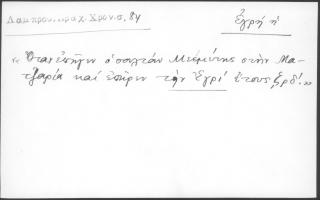 Λαμπρου, βραχ. Χρον. σ. 84
Ἐγρή ἡ
"Ὅταν ἐπῆγεν ὁ σουλτάν Μεεμέτης στὴν Μα-
τζαρία καὶ ἐπῆρεν τὴν Ἐγρί ἔτους ζρδ'."